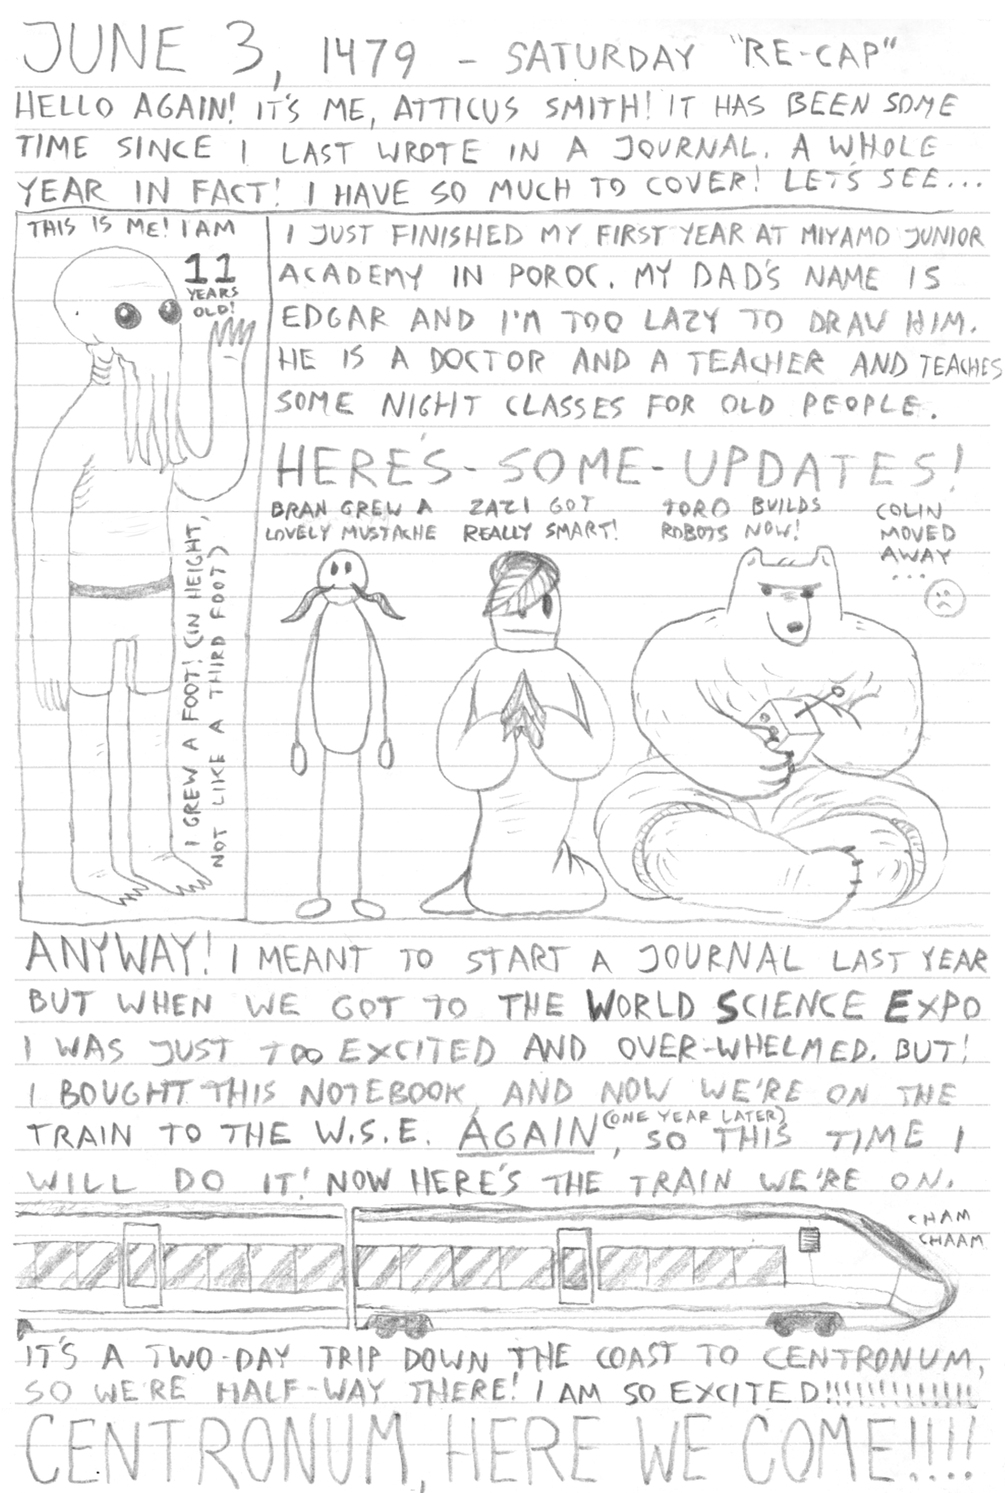 JUNE 3, 1479 - SATURDAY "RE-CAP"
HELLO AGAIN! IT'S ME, ATTICUS SMITH! IT HAS BEEN SOME
TIME SINCE I LAST WROTE IN A JOURNAL. A WHOLE
YEAR IN FACT! I HAVE SO MUCH TO COVER! LET'S SEE...
THIS IS ME! I AM
11
YEARS
OLD!
I GREW A FOOT! (IN HEIGHT,
NOT LIKE A THIRD FOOT)
I JUST FINISHED MY FIRST YEAR AT MIYAMO JUNIOR
ACADEMY IN POROC. MY DAD'S NAME IS
EDGAR AND I'M TOO LAZY TO DRAW HIM.
HE IS A DOCTOR AND A TEACHER AND TEACHES
SOME NIGHT CLASSES FOR OLD PEOPLE.
HERE'S-SOME-UPDATES!
BRAN GREW A
LOVELY MUSTACHE
ZAZI GOT
REALLY SMART!
TORO BUILDS
ROBOTS NOW!
COLIN
MOVED
AWAY
...
ANYWAY! I MEANT TO START A JOURNAL LAST YEAR
BUT WHEN WE GOT TO THE WORLD SCIENCE EXPO
I WAS JUST TOO EXCITED AND OVER-WHELMED. BUT!
I BOUGHT THIS NOTEBOOK AND NOW WE'RE ON THE
TRAIN TO THE W.S.E. AGAIN (ONE YEAR LATER), SO THIS TIME I
WILL DO IT! NOW HERE'S THE TRAIN WE'RE ON.
CHAM
CHAAM
IT'S A TWO-DAY TRIP DOWN THE COAST TO CENTRONUM,
SO WE'RE HALF-WAY THERE! I AM SO EXCITED!!!!!!!!!!!!!
CENTRONUM, HERE WE COME!!!!